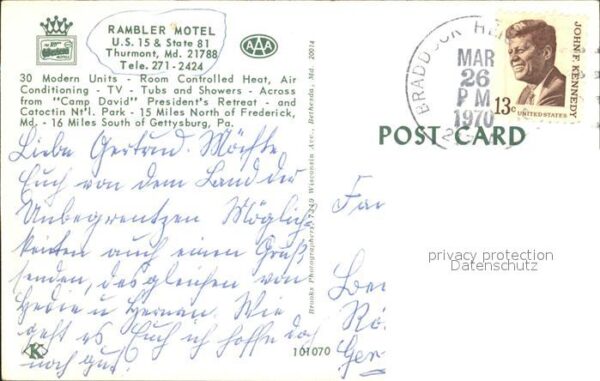 RAMBLER MOTEL
U.S. 15 & State 81
Thurmont, Md. 21788
Tele. 271-2424
AAA
30 Modern Units - Room Controlled Heat, Air
Conditioning - TV - Tubs and Showers - Across
from "Camp David" President's Retreat - and
Catoctin Nt'l. Park - 15 Miles North of Frederick,
Md. - 16 Miles South of Gettysburg, Pa.
Liebe Gertrud. Möchte
Euch von dem Land der
Unbegrentzen Möglich-
keiten auch einen Gruß
senden, desgleichen von
Hedie u Herman. Wie
geht es Euch ich hoffe doch
noch gut.
K
101070
Brooks Photographers, 7349 Wisconsin Ave., Bethesda, Md. 20014
BRADDOCK HE
MAR
26
PM
1970
JOHN F. KENNEDY
13c
UNITED STATES
POST CARD
privacy protection
Datenschutz